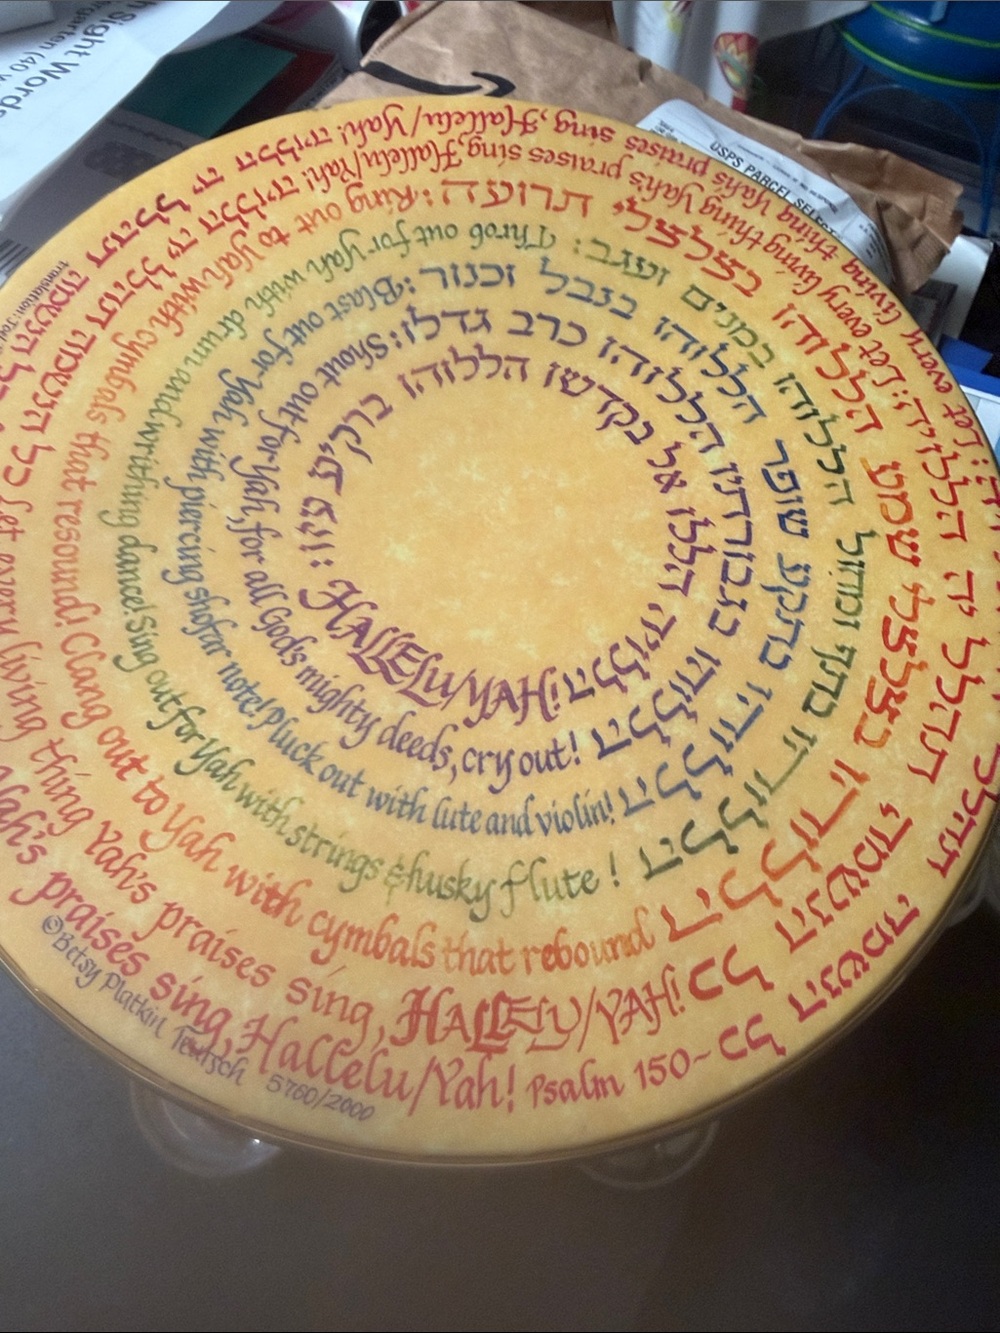 הללויה הללו אל בקדשו הללוהו ברקיע עזו: HALLELU/YAH!
הללוהו בגבורתיו הללוהו כרב גדלו: Shout out for Yah, for all God's mighty deeds, cry out!
הללוהו בתקע שופר הללוהו בנבל וכנור: Blast out for Yah with piercing shofar note! Pluck out with lute and violin!
הללוהו בתף ומחול הללוהו במנים ועגב: Throb out for Yah with drum and writhing dance! Sing out for Yah with strings & husky flute!
הללוהו בצלצלי שמע הללוהו בצלצלי תרועה: Ring out to Yah with cymbals that resound! Clang out to Yah with cymbals that rebound
כל הנשמה תהלל יה הללויה: Let every living thing Yah's praises sing, Hallelu/Yah! כל הנשמה תהלל יה הללויה Let every living thing Yah's praises sing, HALLELU/YAH!
כל הנשמה תהלל Let every living thing Yah's praises sing, Hallelu/Yah! כל הנשמה תהלל יה הללויה Yah's praises sing, Hallelu/Yah! Psalm 150~
©Betsy Platkin Teutsch 5760/2000
translation:
Sight Words
USPS PARCEL SELECT